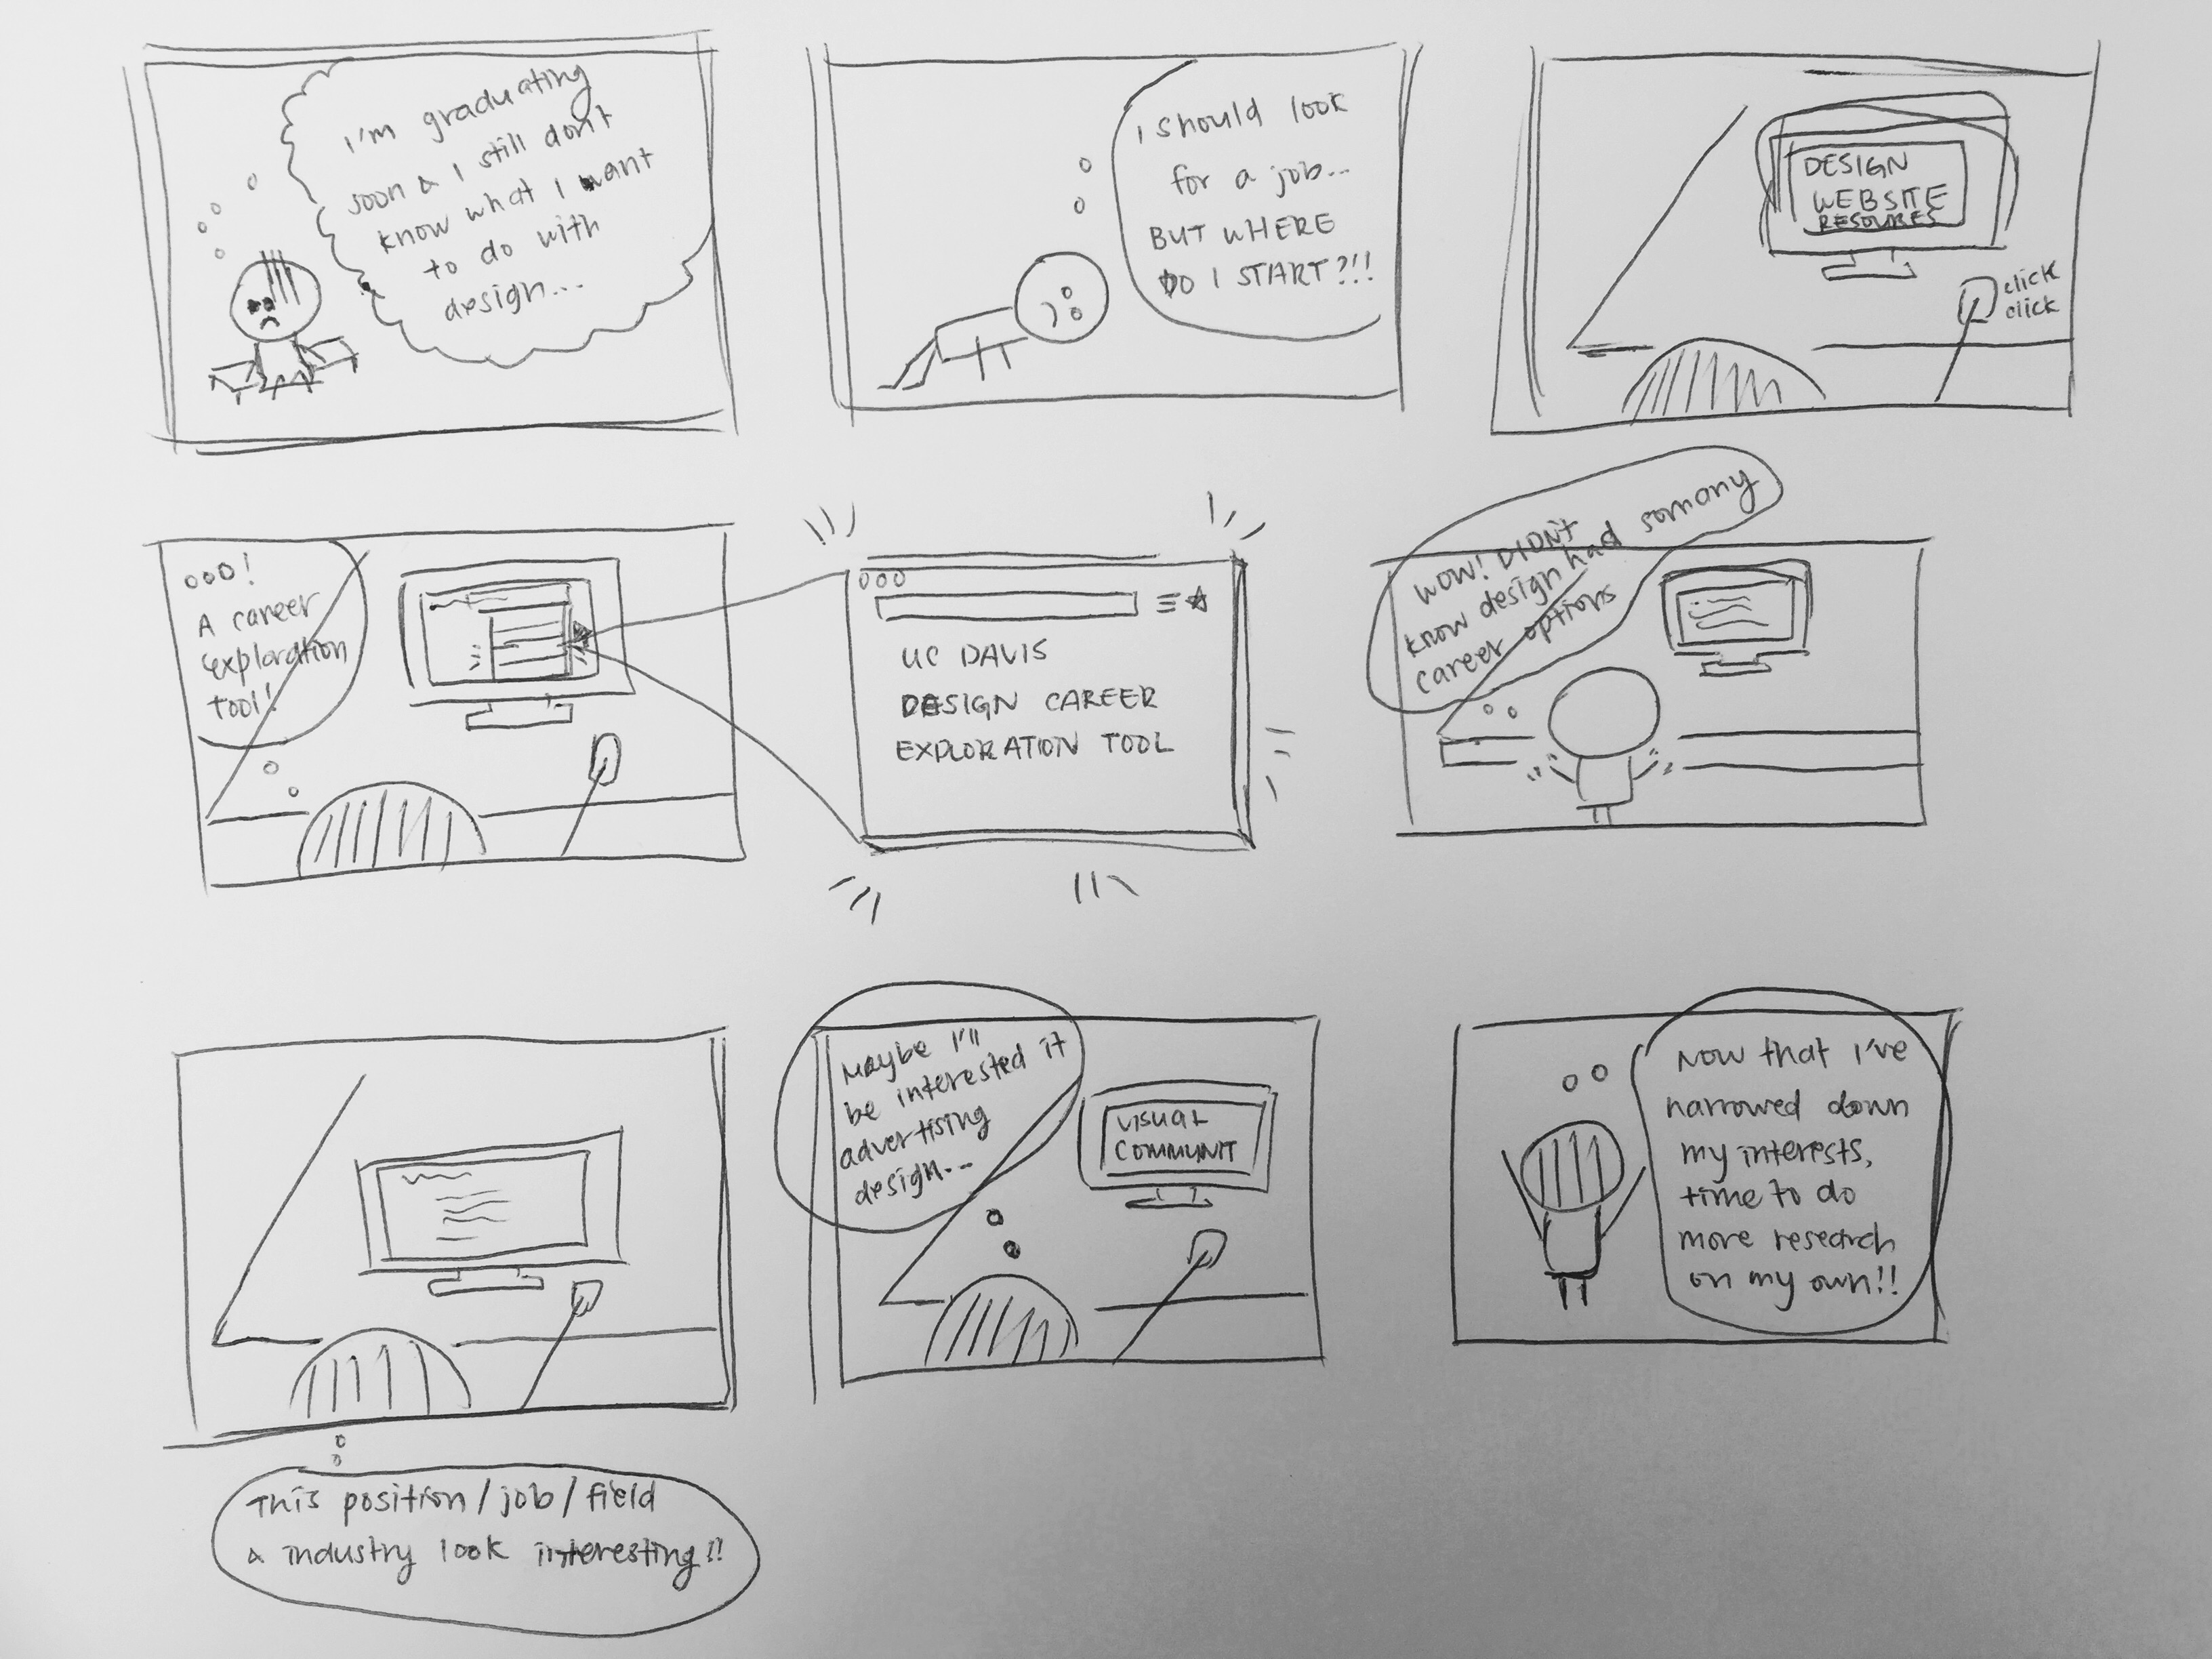 I'm graduating
soon & I still don't
know what I want
to do with
design...
I should look
for a job...
BUT WHERE
DO I START?!!
DESIGN
WEBSITE
RESOURCES
click
click
OOO!
A career
exploration
tool!
UC DAVIS
DESIGN CAREER
EXPLORATION TOOL
WOW! DIDN't
know design had so many
career options
This position/job/field
& industry look interesting!!
Maybe I'll
be interested it
advertising
design...
VISUAL
COMMUNIT
Now that I've
narrowed down
my interests,
time to do
more research
on my own!!